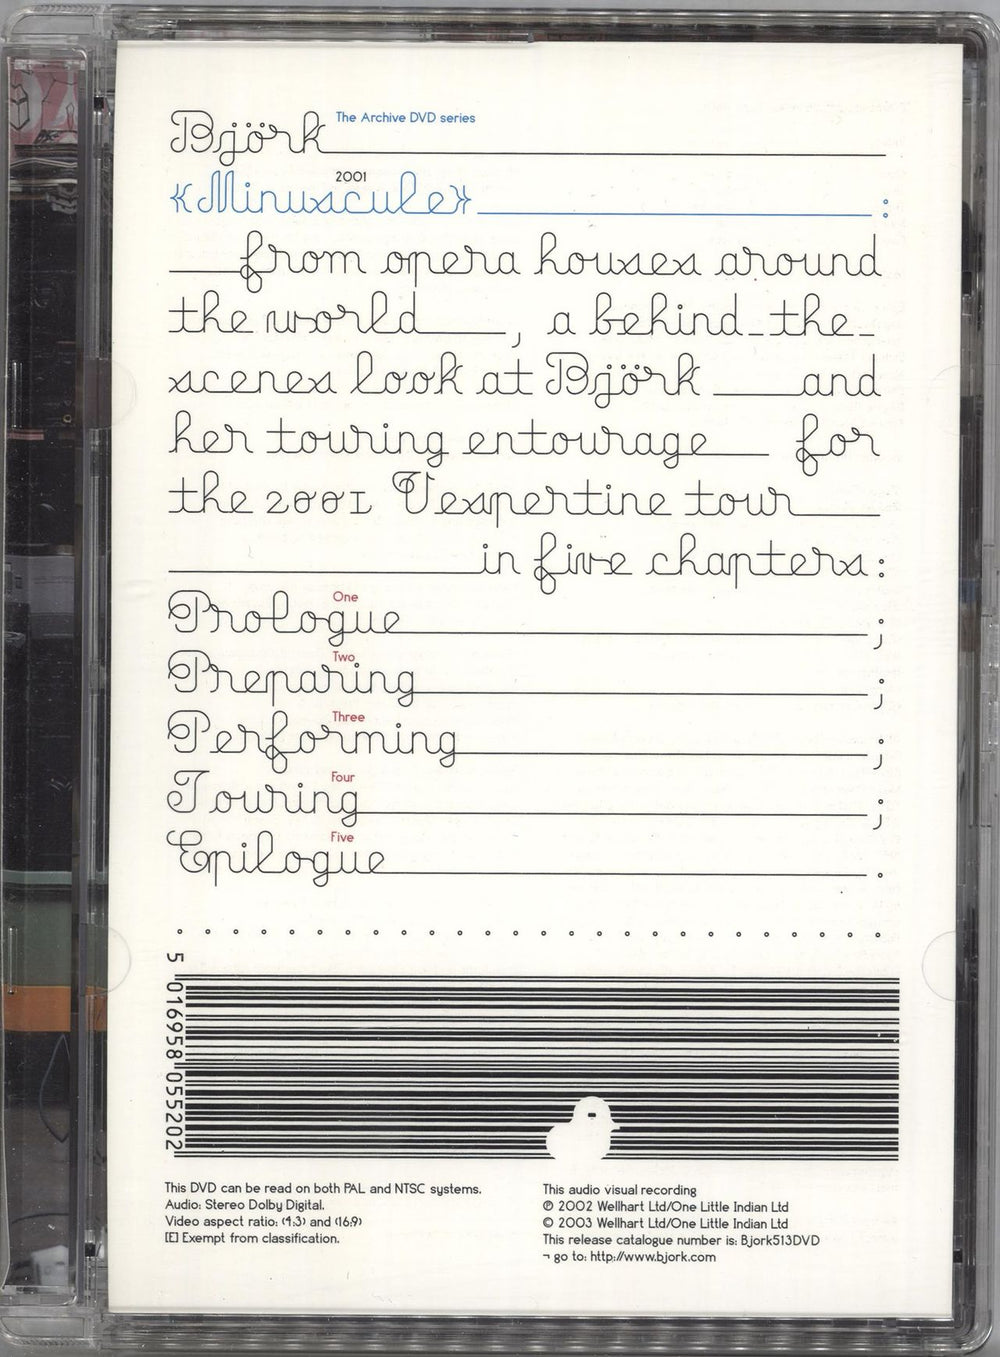 Björk The Archive DVD series
2001
«Minuscule» :
from opera houses around
the world , a behind-the-
scenes look at Björk and
her touring entourage for
the 2001 Vespertine tour
in five chapters:
One
Prologue ;
Two
Preparing ;
Three
Performing ;
Four
Touring ;
Five
Epilogue .
5 016958 055202
This DVD can be read on both PAL and NTSC systems.
Audio: Stereo Dolby Digital.
Video aspect ratio: (4:3) and (16:9)
[E] Exempt from classification.
This audio visual recording
℗ 2002 Wellhart Ltd/One Little Indian Ltd
© 2003 Wellhart Ltd/One Little Indian Ltd
This release catalogue number is: Bjork513DVD
¬ go to: http://www.bjork.com